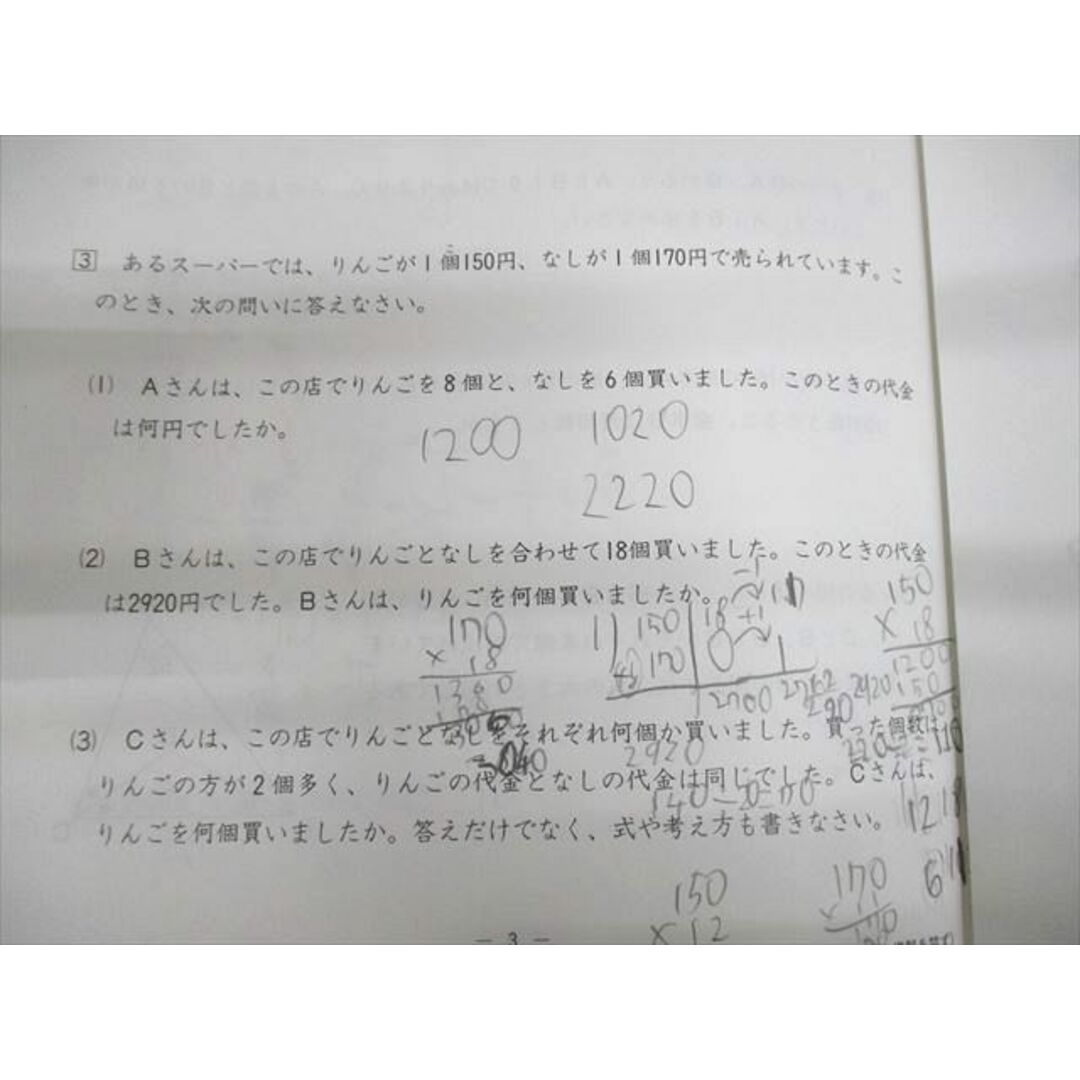 3 あるスーパーでは、りんごが1個150円、なしが1個170円で売られています。こ
のとき、次の問いに答えなさい。
(1) Aさんは、この店でりんごを8個と、なしを6個買いました。このときの代金
は何円でしたか。
1200 1020
2220
(2) Bさんは、この店でりんごとなしを合わせて18個買いました。このときの代金
は2920円でした。Bさんは、りんごを何個買いましたか。
-1
17
170
× 18
150
170
18 +1
0 1
150
× 18
1200
150
2700
2920
(3) Cさんは、この店でりんごとなしをそれぞれ何個か買いました。買った個数は、
2920
りんごの方が2個多く、りんごの代金となしの代金は同じでした。Cさんは、
りんごを何個買いましたか。答えだけでなく、式や考え方も書きなさい。
12
6
150
× 12
170
— 3 —